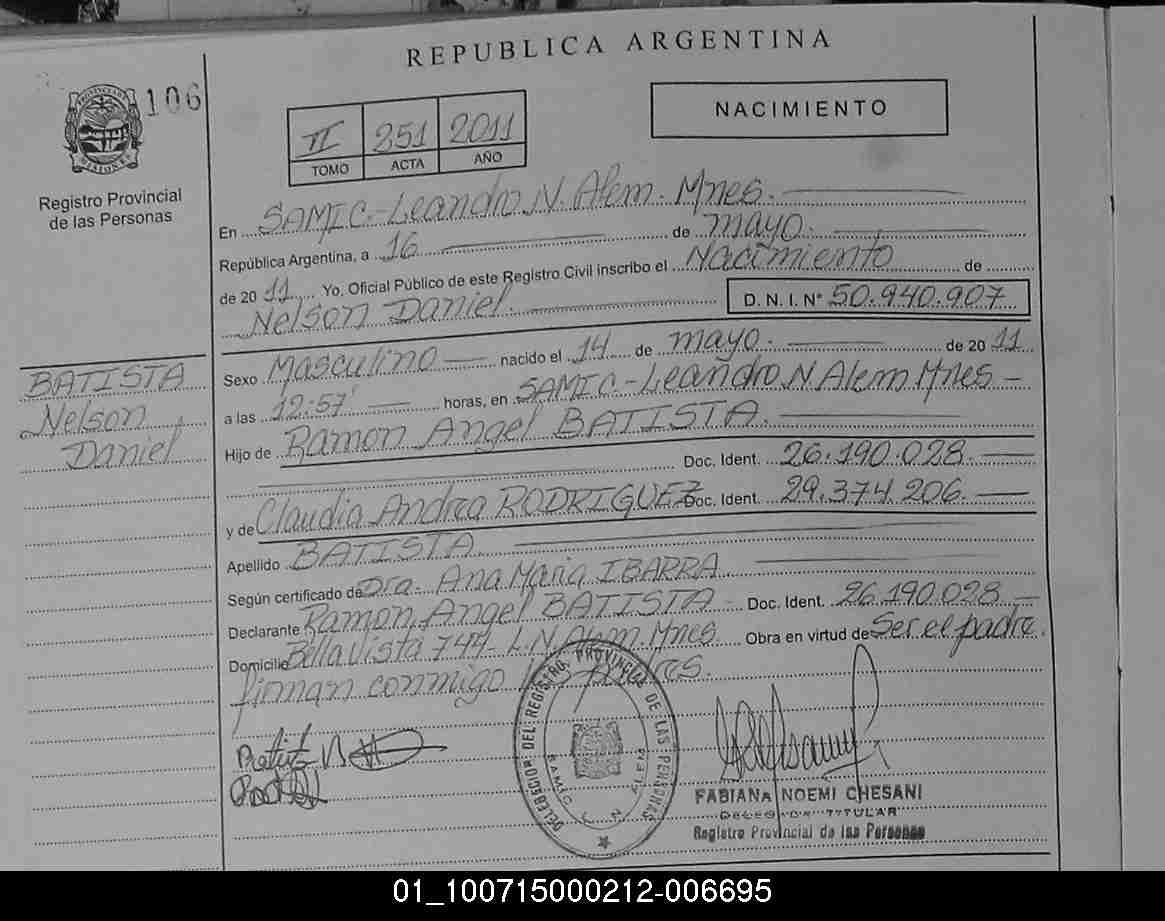 REPUBLICA ARGENTINA
PROVINCIA DE MISIONES
106
Registro Provincial
de las Personas
II 251 2011
TOMO ACTA AÑO
NACIMIENTO
En SAMIC.-Leandro N. Alem. Mnes.
República Argentina, a 16 de mayo.
de 20 11 Yo, Oficial Público de este Registro Civil inscribo el Nacimiento de
Nelson Daniel. D. N. I. N° 50.940.907
BATISTA
Nelson
Daniel
Sexo Masculino nacido el 14 de mayo. de 20 11
a las 12:57' horas, en SAMIC.-Leandro N Alem Mnes
Hijo de Ramon Angel BATISTA.
Doc. Ident. 26.190.028.
y de Claudia Andrea RODRIGUEZ Doc. Ident. 29.374.206.
Apellido BATISTA.
Según certificado de Dra. Ana Maria IBARRA
Declarante Ramon Angel BATISTA Doc. Ident. 26.190.028
Domicilio Bella Vista 744- L.N Alem Mnes. Obra en virtud de Ser el padre.
firman conmigo los
DELEGACION DEL REGISTRO PROVINCIAL DE LAS PERSONAS
SAMIC L N ALEM
FABIANA NOEMI CHESANI
DELEGADA TITULAR
Registro Provincial de las Personas
01_100715000212-006695